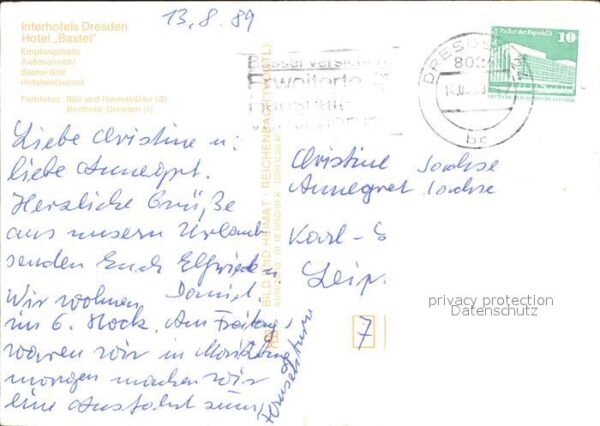 13.8.89
Interhotels Dresden
Hotel „Bastei"
Empfangshalle
Außenansicht
Bastei-Grill
Hotelrestaurant
Farbfotos: Bild und Heimat/Darr (3)
Berthold, Dresden (1)
Liebe Christine u.
liebe Annegret.
Herzliche Grüße
aus unserm Urlaub
senden Euch Elfriede
Wir wohnen Daniel
im 6. Stock. Am Freitag
waren wir in Moritzburg
morgen machen wir
eine Ausfahrt zum
BILD UND HEIMAT · REICHENBACH
besser versichern
erweiterte
Haushalt
DRESDEN
80
bc
Palast der Republik
10
Christine
Annegret
Karl-S
Leip.
7
privacy protection
Datenschutz